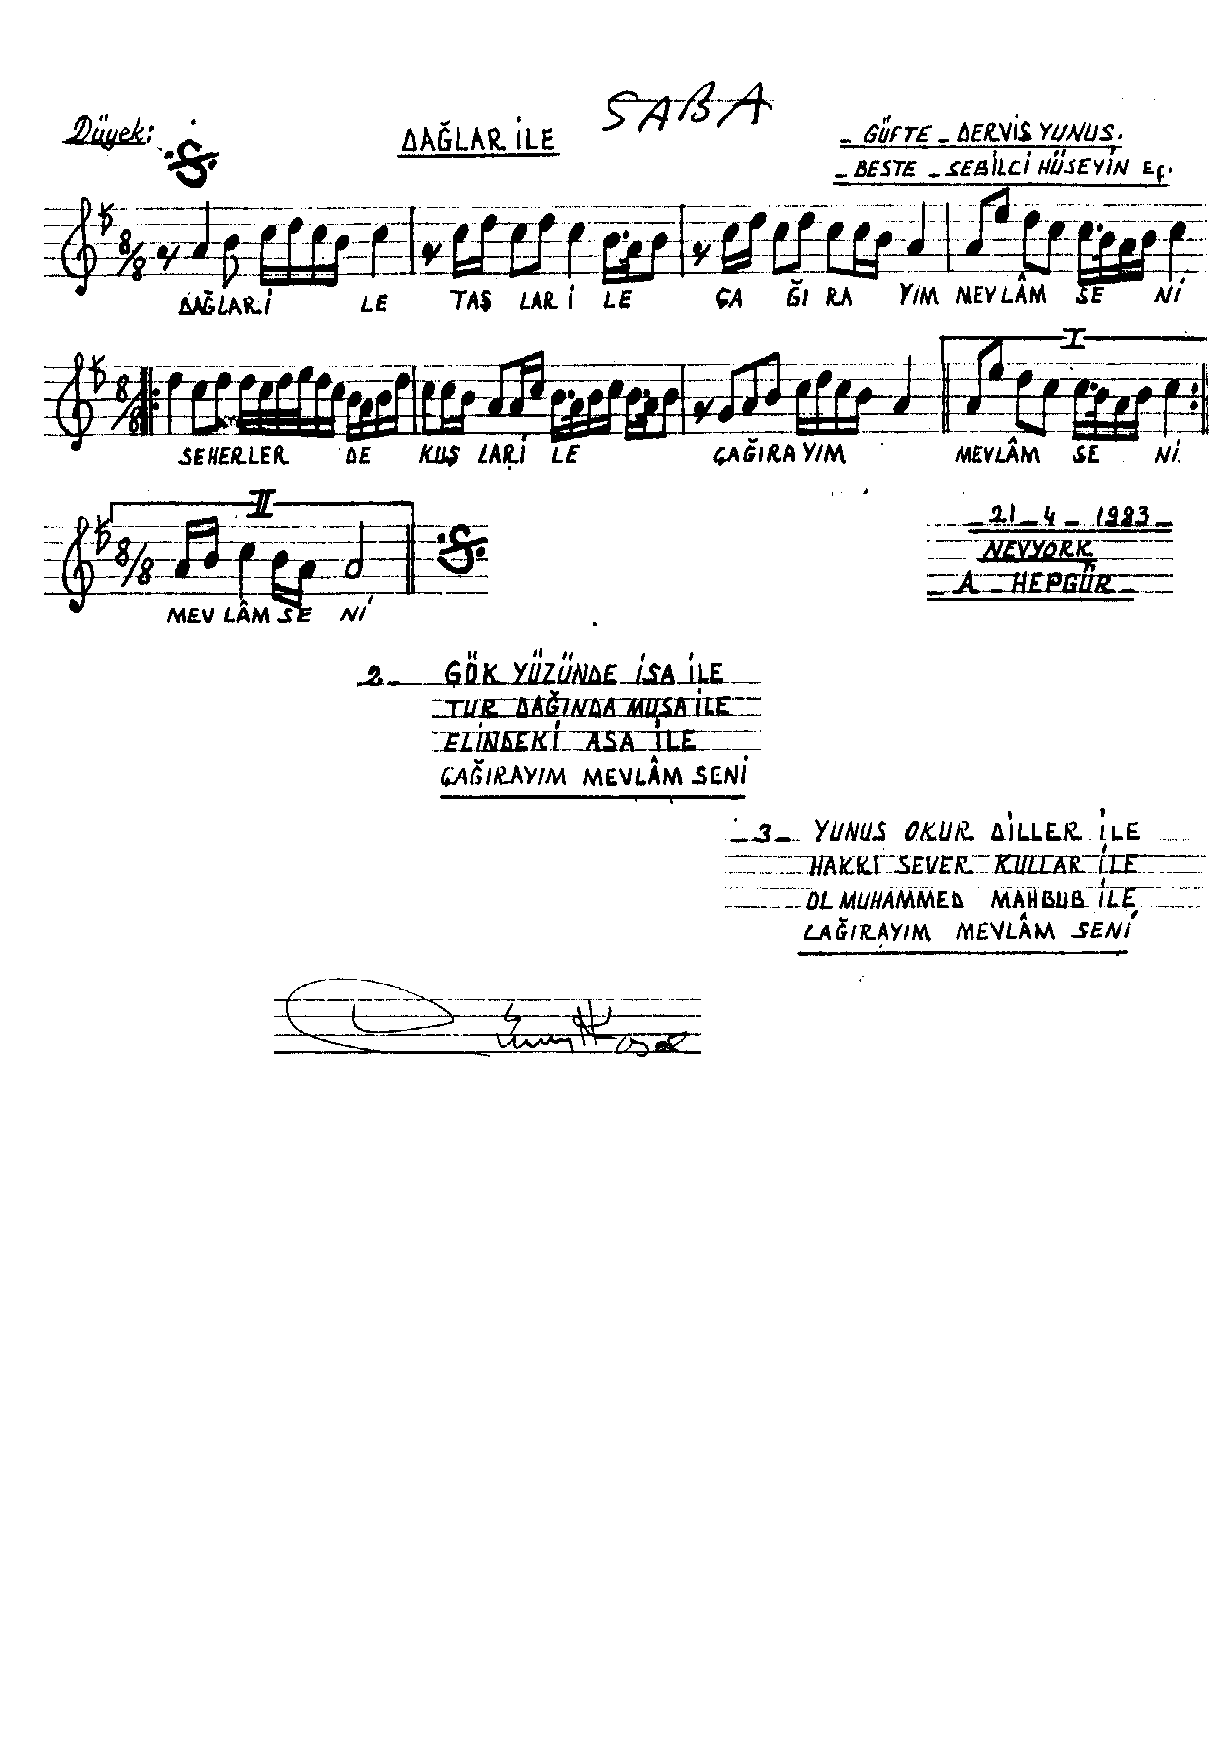 SABA
Düyek:
DAĞLAR İLE
- GÜFTE - DERVİŞ YUNUS.
- BESTE - SEBİLCİ HÜSEYİN Ef.
8/8
DAĞLAR İ LE TAŞ LAR İ LE ÇA ĞI RA YIM MEVLÂM SE Nİ
I
8/8
SEHERLER DE KUŞ LAR İ LE ÇAĞIRAYIM MEVLÂM SE Nİ
II
8/8
MEV LÂM SE Nİ
- 21 - 4 - 1983 -
NEVYORK
- A - HEPGÜR -
2- GÖK YÜZÜNDE İSA İLE
TUR DAĞINDA MUSA İLE
ELİNDEKİ ASA İLE
ÇAĞIRAYIM MEVLÂM SENİ
-3- YUNUS OKUR DİLLER İLE
HAKKI SEVER KULLAR İLE
OL MUHAMMED MAHBUB İLE
ÇAĞIRAYIM MEVLÂM SENİ